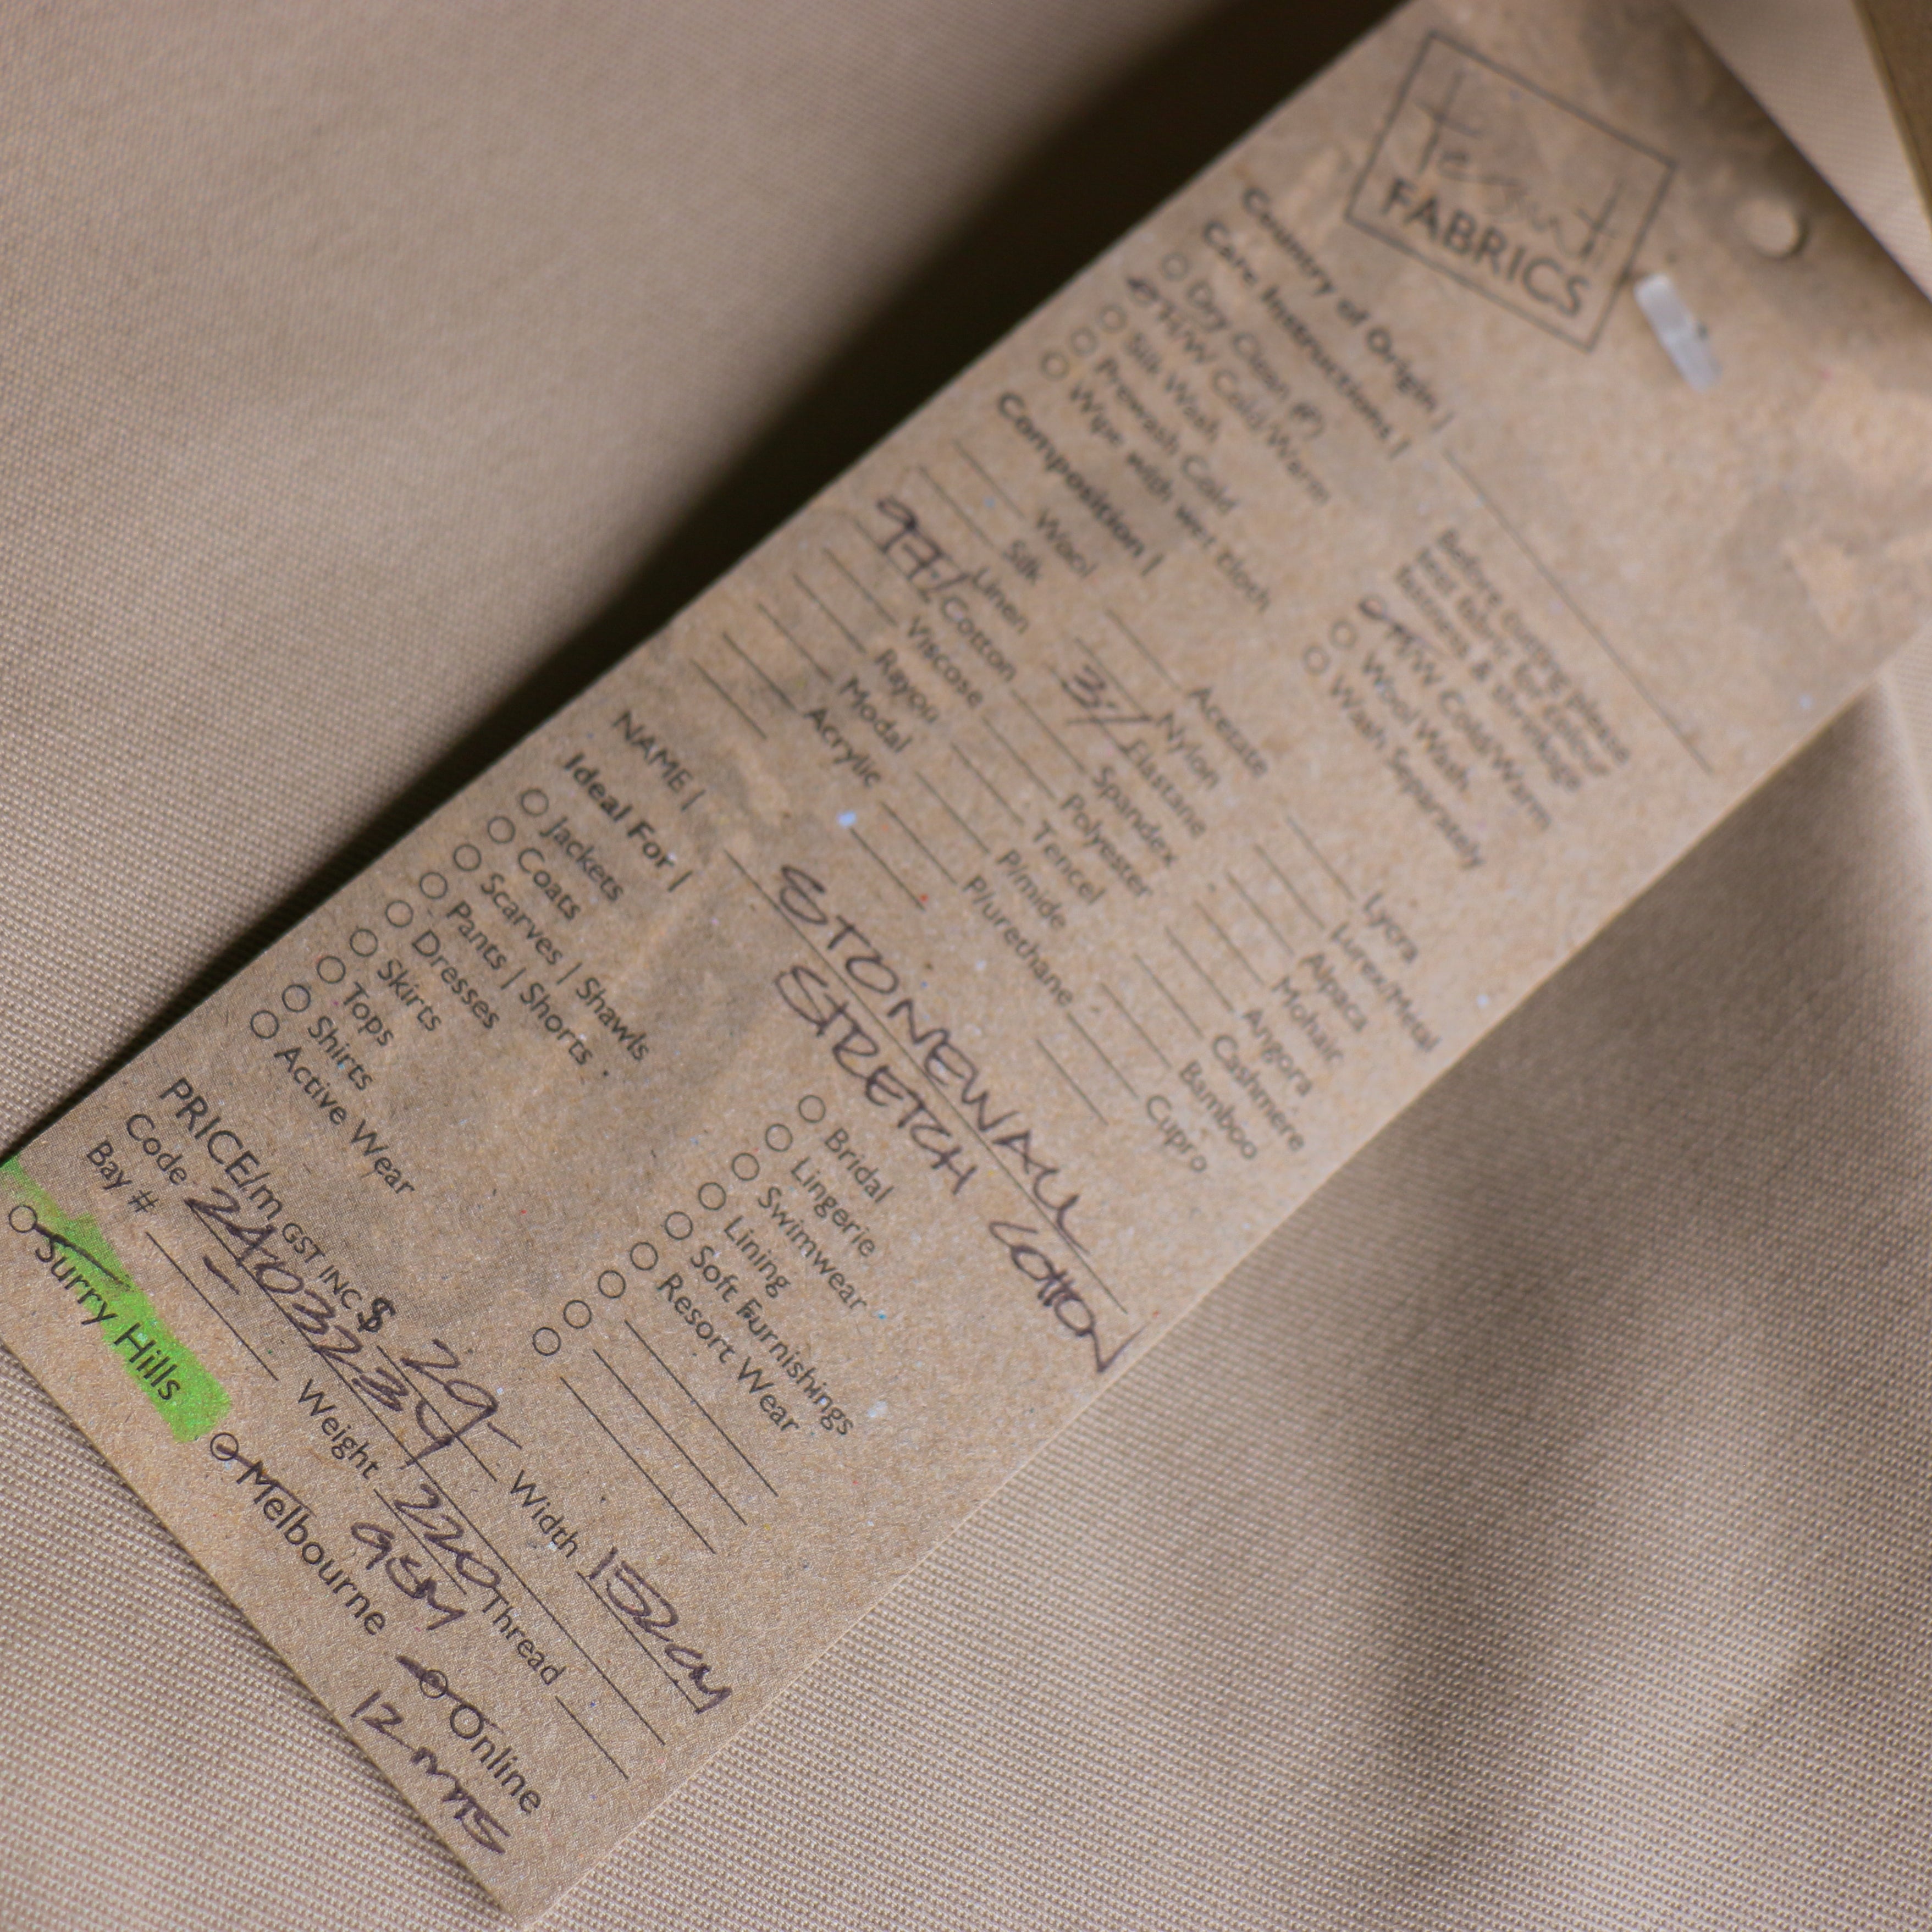 tessuti
FABRICS
Country of Origin |
Care Instructions |
Before cutting please
test fabric for colour
fastness & shrinkage
Dry Clean (P)
H/W Cold/Warm
M/W Cold/Warm
Silk Wash
Wool Wash
Prewash Cold
Wash Separately
Wipe with wet cloth
Composition |
Wool
Acetate
Lycra
Silk
Nylon
Lurex/Metal
Linen
3% Elastane
Alpaca
97% Cotton
Spandex
Mohair
Viscose
Polyester
Angora
Rayon
Tencel
Cashmere
Modal
P/mide
Bamboo
Acrylic
P/urethane
Cupro
NAME | STONEWALL
STRETCH COTTON
Ideal For |
Jackets
Bridal
Coats
Lingerie
Scarves | Shawls
Swimwear
Pants | Shorts
Lining
Dresses
Soft Furnishings
Skirts
Resort Wear
Tops
Shirts
Active Wear
PRICE/m GST INC $ 29- Width 152cm
Code 24032234
Bay # - Weight 220 Thread
GSM
Surry Hills Melbourne Online
12 mts